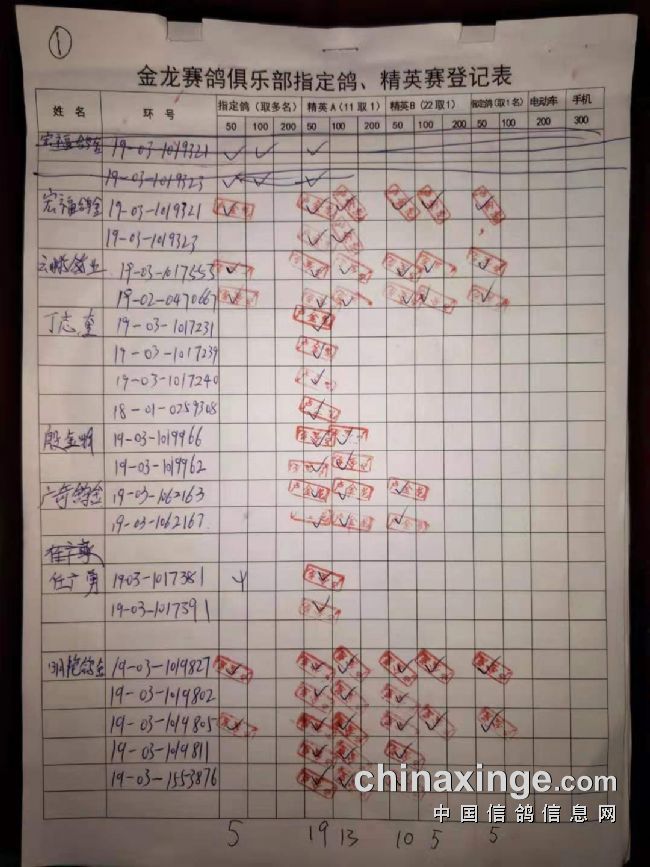 ①
金龙赛鸽俱乐部指定鸽、精英赛登记表
姓名 环号 指定鸽(取多名) 精英A(11取1) 精英B(22取1) 指定鸽(取1名) 电动车 手机
50 100 200 50 100 200 50 100 200 50 100 200 300
19-03-1019321 ✓ ✓ ✓
19-03-1019323 ✓ ✓ ✓
宏福鸽舍 19-03-1019321
19-03-1019323
19-03-1017553
19-02-0470667
丁志 19-03-1017231
19-03-1017239
19-03-1017240
18-01-0259308
殷金 19-03-1019966
19-03-1019962
广奇鸽舍 19-03-1062163
19-03-1062167
任广勇 1903-1017381
19-03-1017391
鸽舍 19-03-1019827
19-03-1019802
19-03-1019805
19-03-1019811
19-03-1553876
5 19 13 10 5 5
chinaxinge.com
中国信鸽信息网